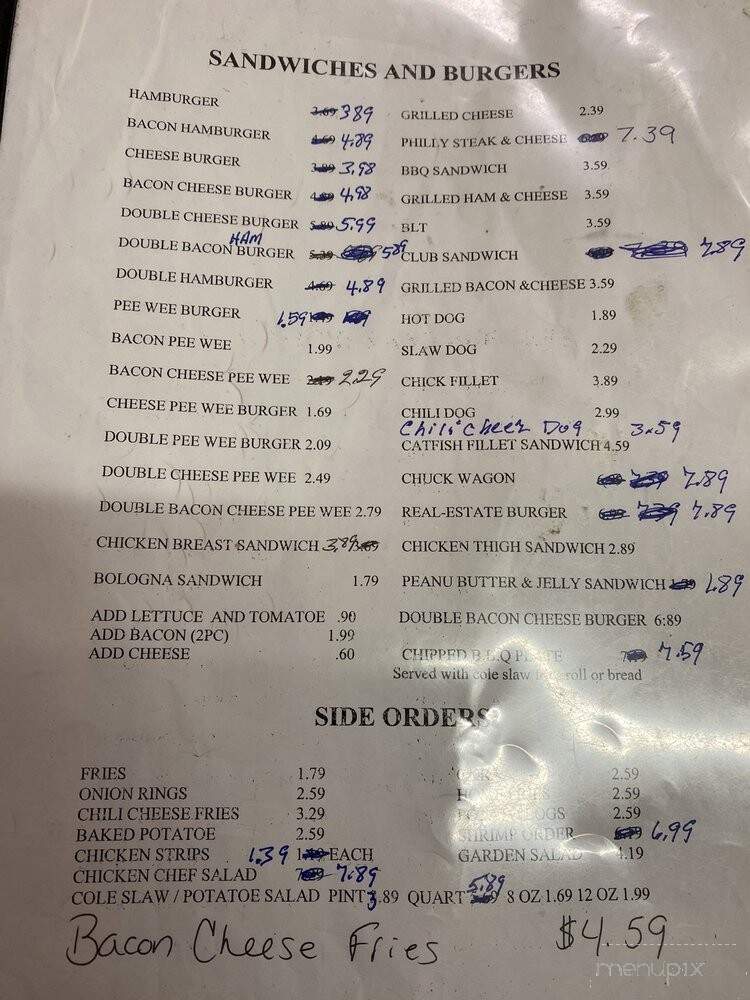 SANDWICHES AND BURGERS
HAMBURGER 3.69 3.89
BACON HAMBURGER 4.69 4.89
CHEESE BURGER 3.98
BACON CHEESE BURGER 4.98
DOUBLE CHEESE BURGER 5.99
HAM
DOUBLE BACON BURGER 5.89
DOUBLE HAMBURGER 4.69 4.89
PEE WEE BURGER 1.59
BACON PEE WEE 1.99
BACON CHEESE PEE WEE 2.29
CHEESE PEE WEE BURGER 1.69
DOUBLE PEE WEE BURGER 2.09
DOUBLE CHEESE PEE WEE 2.49
DOUBLE BACON CHEESE PEE WEE 2.79
CHICKEN BREAST SANDWICH 3.89
BOLOGNA SANDWICH 1.79
ADD LETTUCE AND TOMATOE .90
ADD BACON (2PC) 1.99
ADD CHEESE .60
GRILLED CHEESE 2.39
PHILLY STEAK & CHEESE 7.39
BBQ SANDWICH 3.59
GRILLED HAM & CHEESE 3.59
BLT 3.59
CLUB SANDWICH 7.89
GRILLED BACON &CHEESE 3.59
HOT DOG 1.89
SLAW DOG 2.29
CHICK FILLET 3.89
CHILI DOG 2.99
Chili Cheez Dog 3.59
CATFISH FILLET SANDWICH 4.59
CHUCK WAGON 7.89
REAL-ESTATE BURGER 7.89
CHICKEN THIGH SANDWICH 2.89
PEANU BUTTER & JELLY SANDWICH 1.89
DOUBLE BACON CHEESE BURGER 6:89
CHIPPED B.B.Q PLATE 7.59
Served with cole slaw roll or bread
SIDE ORDERS
FRIES 1.79
ONION RINGS 2.59
CHILI CHEESE FRIES 3.29
BAKED POTATOE 2.59
CHICKEN STRIPS 1.39 EACH
CHICKEN CHEF SALAD 7.89
2.59
2.59
2.59
SHRIMP ORDER 6.99
GARDEN SALAD 4.19
COLE SLAW / POTATOE SALAD PINT 3.89 QUART 5.89 8 OZ 1.69 12 OZ 1.99
Bacon Cheese Fries $4.59
menupix